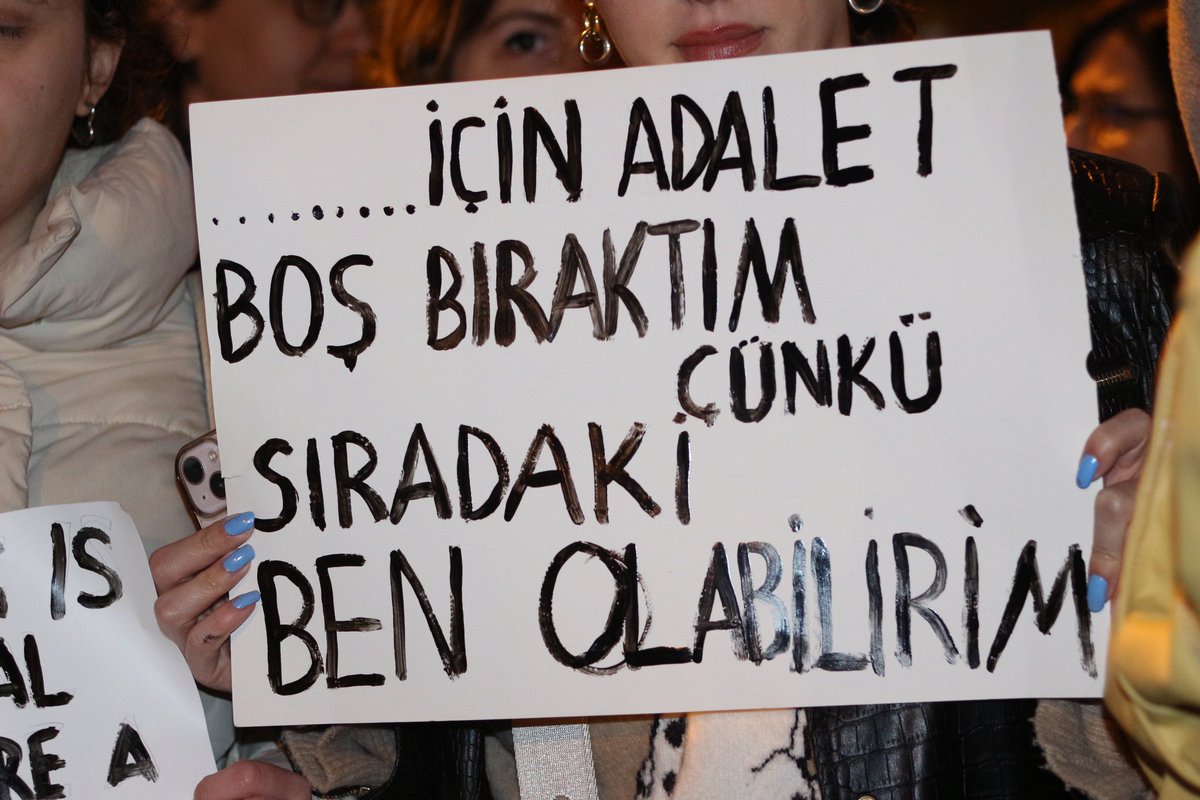 .......... İÇİN ADALET
BOŞ BIRAKTIM
ÇÜNKÜ
SIRADAKİ
BEN OLABİLİRİM
IS
AL
RE A